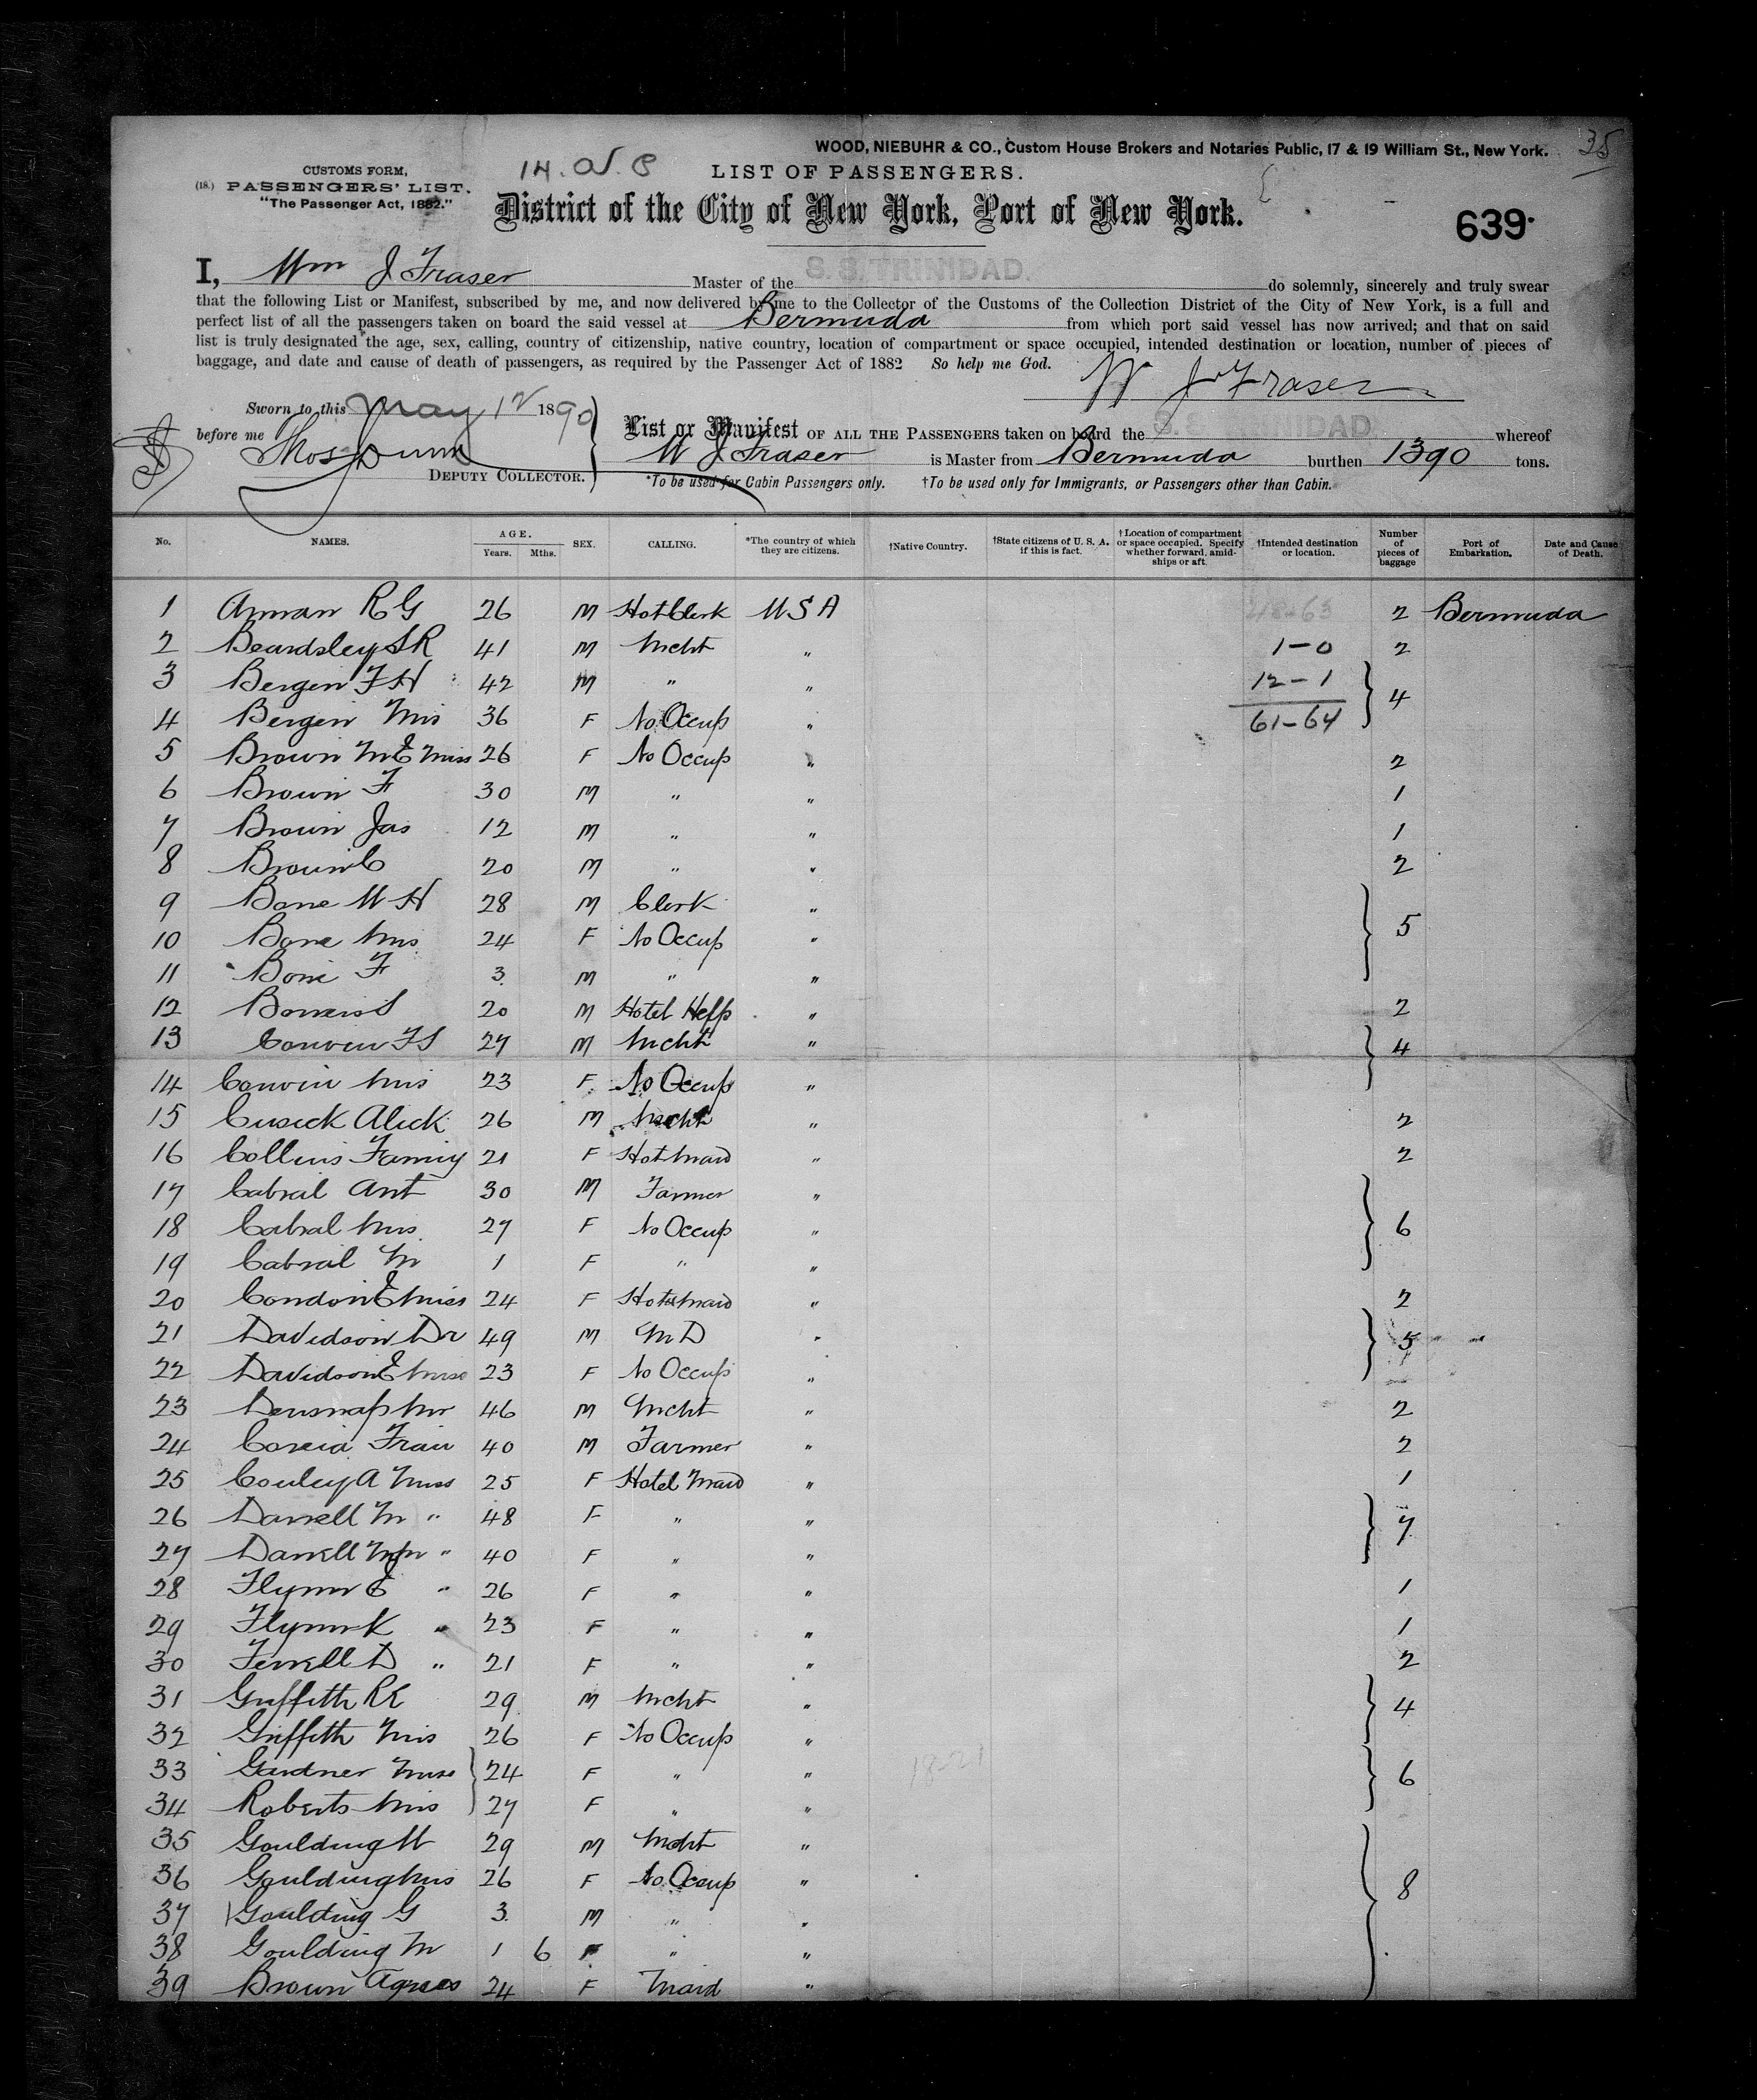 WOOD, NIEBUHR & CO., Custom House Brokers and Notaries Public, 17 & 19 William St., New York. 35
CUSTOMS FORM,
(18.) PASSENGERS' LIST.
"The Passenger Act, 1882."
14.
LIST OF PASSENGERS.
District of the City of New York, Port of New York.
639
I, Wm J Fraser Master of the S. S. TRINIDAD. do solemnly, sincerely and truly swear
that the following List or Manifest, subscribed by me, and now delivered by me to the Collector of the Customs of the Collection District of the City of New York, is a full and
perfect list of all the passengers taken on board the said vessel at Bermuda from which port said vessel has now arrived; and that on said
list is truly designated the age, sex, calling, country of citizenship, native country, location of compartment or space occupied, intended destination or location, number of pieces of
baggage, and date and cause of death of passengers, as required by the Passenger Act of 1882 So help me God.
W J Fraser
Sworn to this May 12 1890
before me Thos Dunn
DEPUTY COLLECTOR.
List or Manifest OF ALL THE PASSENGERS taken on board the S. S. TRINIDAD whereof
W J Fraser is Master from Bermuda burthen 1390 tons.
*To be used for Cabin Passengers only. †To be used only for Immigrants, or Passengers other than Cabin.
No. NAMES. AGE. Years. Mths. SEX. CALLING. *The country of which they are citizens. †Native Country. †State citizens of U. S. A. if this is fact. †Location of compartment or space occupied. Specify whether forward, amidships or aft. †Intended destination or location. Number of pieces of baggage Port of Embarkation. Date and Cause of Death.
1 Arman R G 26 M Hot Clerk U S A 48-63 2 Bermuda
2 Beardsley S R 41 M Mcht " 1-0 2
3 Bergen F H 42 M " " 12-1 4
4 Bergen Mrs 36 F No Occup " 61-64
5 Brown M E Miss 26 F No Occup " 2
6 Brown F 30 M " " 1
7 Brown Jas 12 M " " 1
8 Brown C 20 M " " 2
9 Bone W H 28 M Clerk " 5
10 Bone Mrs 24 F No Occup "
11 Bone F 3 M " "
12 S 20 M Hotel Help " 2
13 Corwin F S 27 M Mcht " 4
14 Corwin Mrs 23 F No Occup "
15 Cusick Alick 26 M Mcht " 2
16 Collins Fanny 21 F Hot Maid " 2
17 Cabral Ant 30 M Farmer " 6
18 Cabral Mrs 27 F No Occup "
19 Cabral M 1 F " "
20 Condon E Miss 24 F Hot Maid " 2
21 Davidson Dr 49 M M D " 5
22 Davidson E Miss 23 F No Occup "
23 Densnap Mr 46 M Mcht " 2
24 Correia Fran 40 M Farmer " 2
25 Conley A Miss 25 F Hotel Maid " 1
26 Darrell M " 48 F " " 7
27 Darrell " 40 F " "
28 Flynn E " 26 F " " 1
29 Flynn K " 23 F " " 1
30 Ferrell D " 21 F " " 2
31 Griffith R E 29 M Mcht " 4
32 Griffith Mrs 26 F No Occup "
33 Gardner Miss 24 F " " 6
34 Roberts Mrs 27 F " "
35 Goulding W 29 M Mcht " 8
36 Goulding Mrs 26 F No Occup "
37 Goulding G 3 M " "
38 Goulding M 1 6 F " "
39 Brown Agnes 24 F Maid "